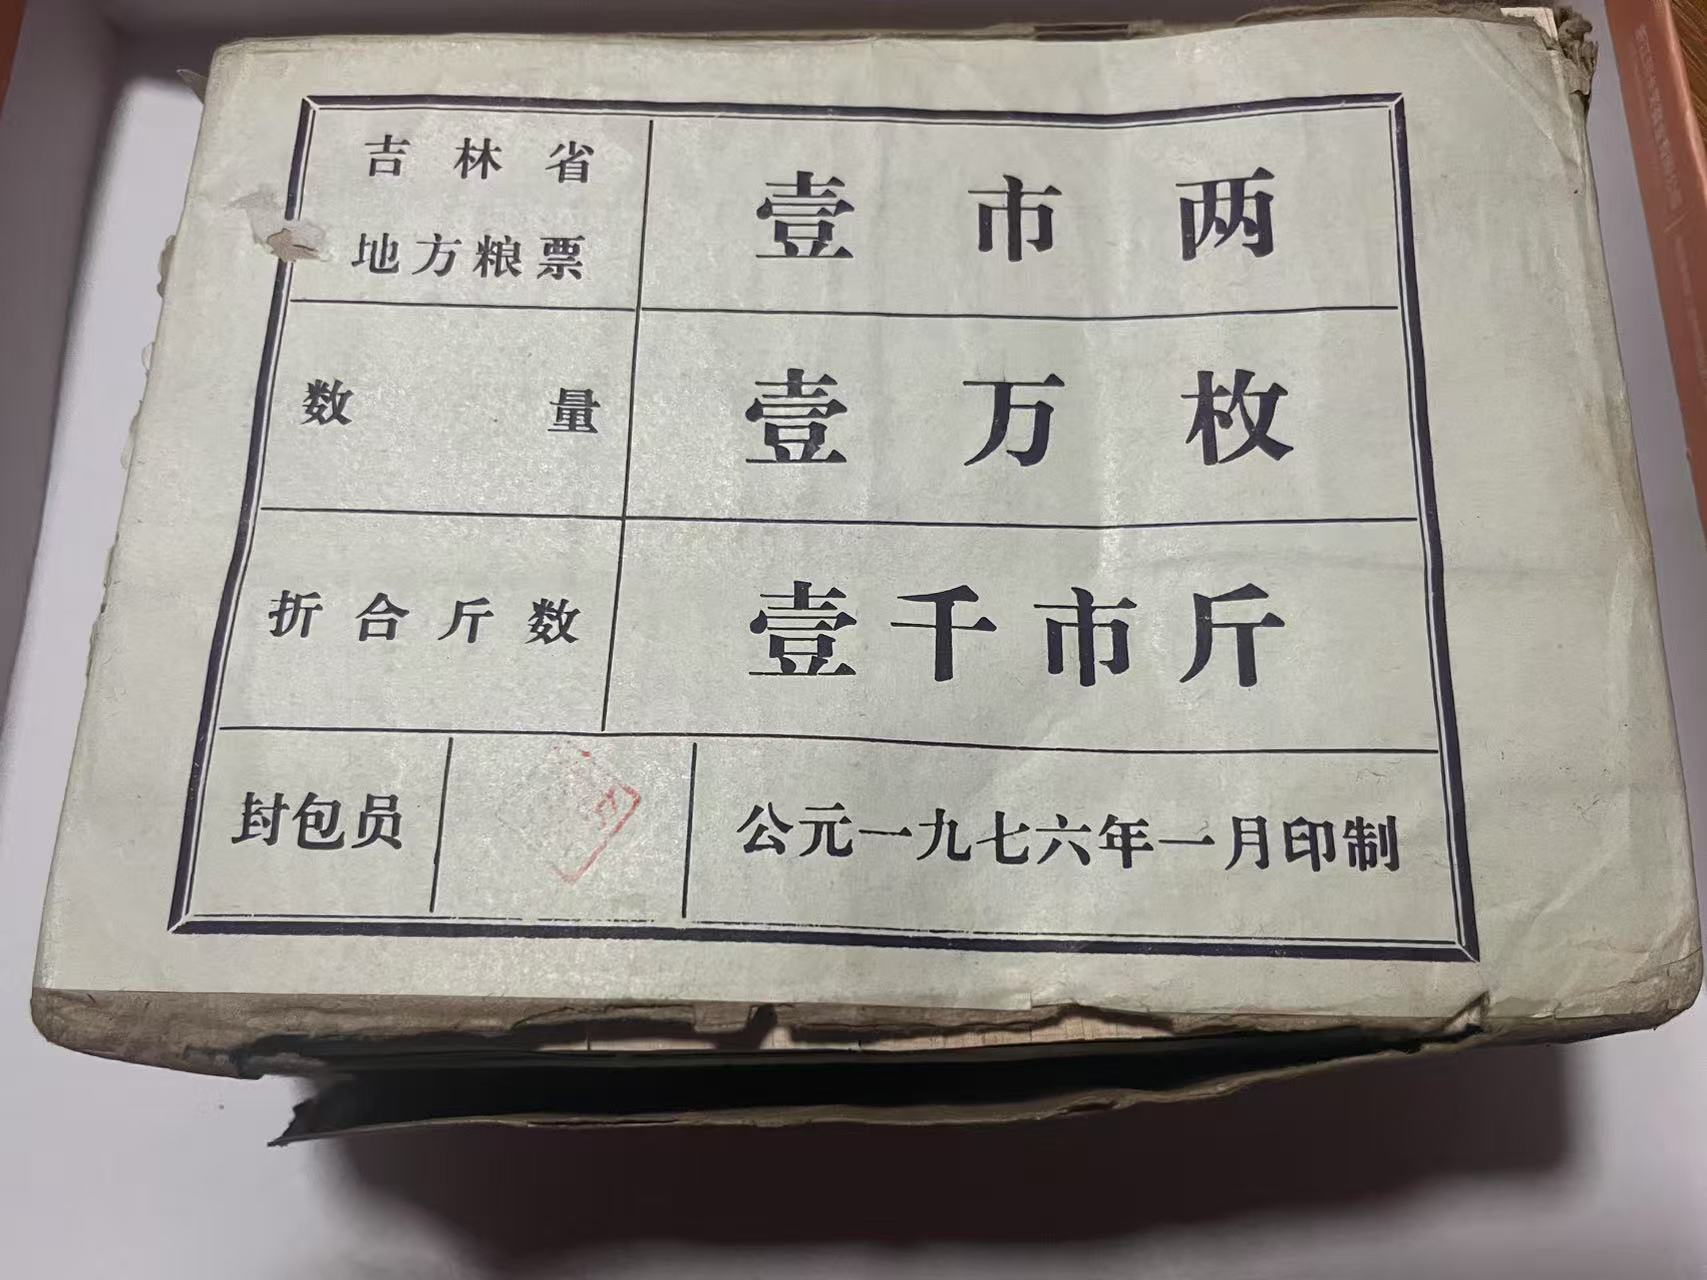 吉林省
地方粮票
壹市两
数量
壹万枚
折合斤数
壹千市斤
封包员
公元一九七六年一月印制